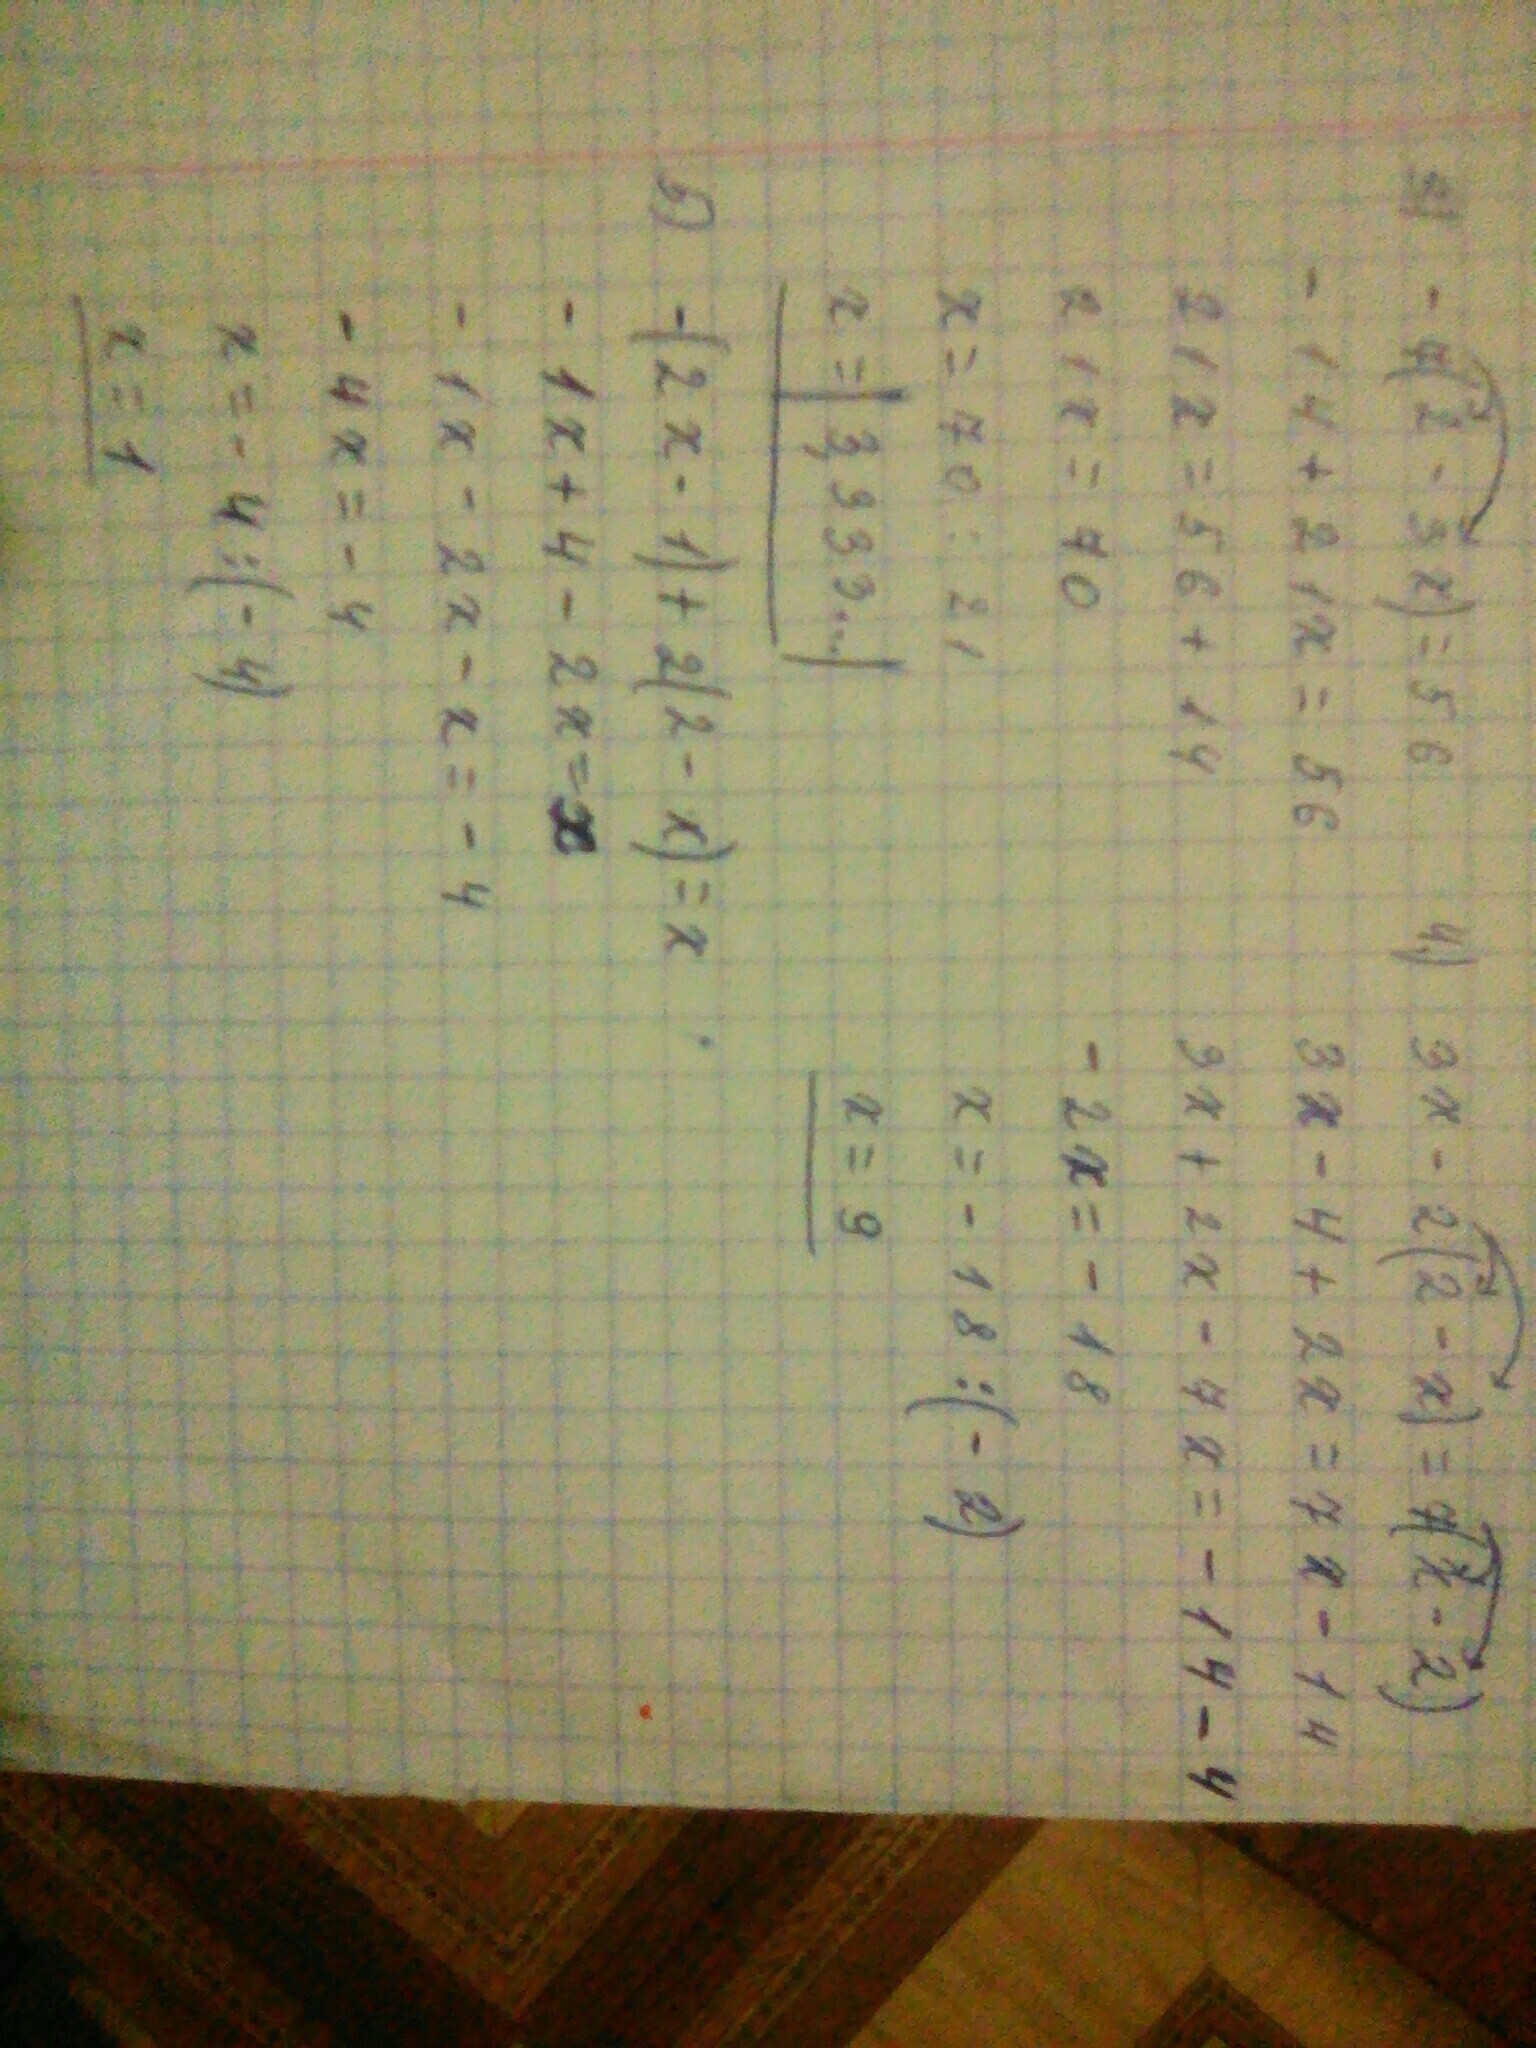 2) - 7(2 - 3x) = 56
- 14 + 21x = 56
21x = 56 + 14
21x = 70
x = 70 : 21
x = | 3,333... |
4) 3x - 2(2 - x) = 7(x - 2)
3x - 4 + 2x = 7x - 14
3x + 2x - 7x = - 14 - 4
- 2x = - 18
x = - 18 : (- 2)
x = 9
5) - (2x - 1) + 2(2 - x) = x
- 1x + 4 - 2x = x
- 1x - 2x - x = - 4
- 4x = - 4
x = - 4 : (- 4)
x = 1